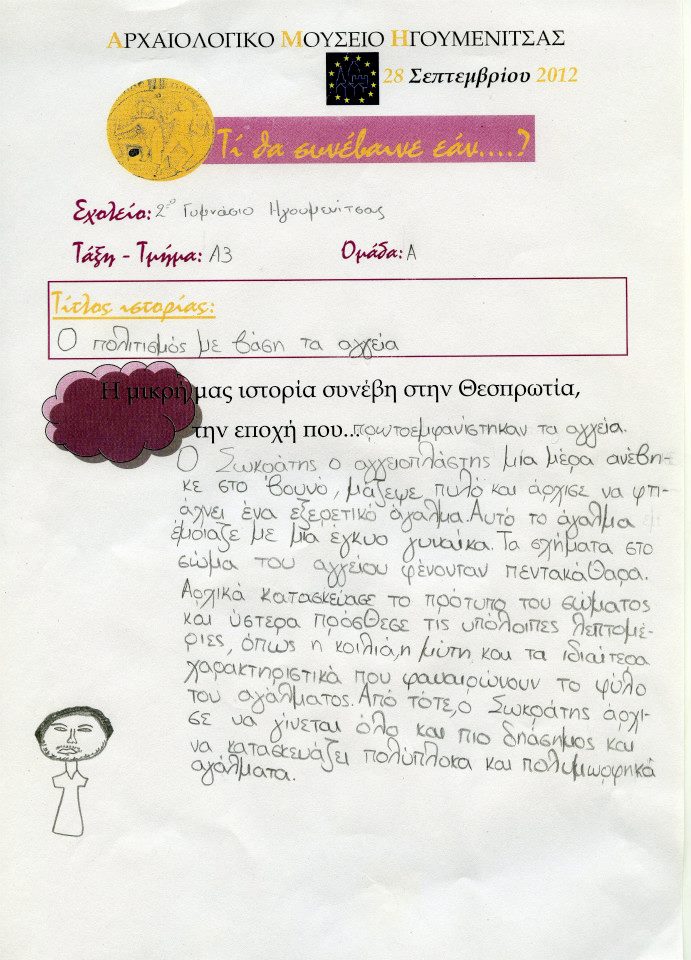 ΑΡΧΑΙΟΛΟΓΙΚΟ ΜΟΥΣΕΙΟ ΗΓΟΥΜΕΝΙΤΣΑΣ
28 Σεπτεμβρίου 2012
Τί θα συνέβαινε εάν....?
Σχολείο: 2ο Γυμνάσιο Ηγουμενίτσας
Τάξη - Τμήμα: Λ3 Ομάδα: Α
Τίτλος ιστορίας:
Ο πολιτισμός με βάση τα αγγεία
Η μικρή μας ιστορία συνέβη στην Θεσπρωτία,
την εποχή που... πρωτοεμφανίστηκαν τα αγγεία.
Ο Σωκράτης ο αγγειοπλάστης μια μέρα ανέβη-
κε στο βουνό, μάζεψε πυλό και άρχισε να φτι-
άχνει ένα εξερετικό άγαλμα. Αυτό το άγαλμα
έμοιαζε με μία εγκυο γυναίκα. Τα σχήματα στο
σώμα του αγγείου φένονταν πεντακάθαρα.
Αρχικά κατασκεύασε το πρότυπο του σώματος
και ύστερα πρόσθεσε τις υπόλοιπες λεπτομέ-
ριες, όπως η κοιλιά, η μύτη και τα ιδιαίτερα
χαρακτηριστικά που φαναιρώνουν το φύλο
του αγάλματος. Από τότε, ο Σωκράτης άρχι-
σε να γίνεται όλο και πιο δηάσημος και
να κατασκευάζει πολύπλοκα και πολυμωρφικά
αγάλματα.